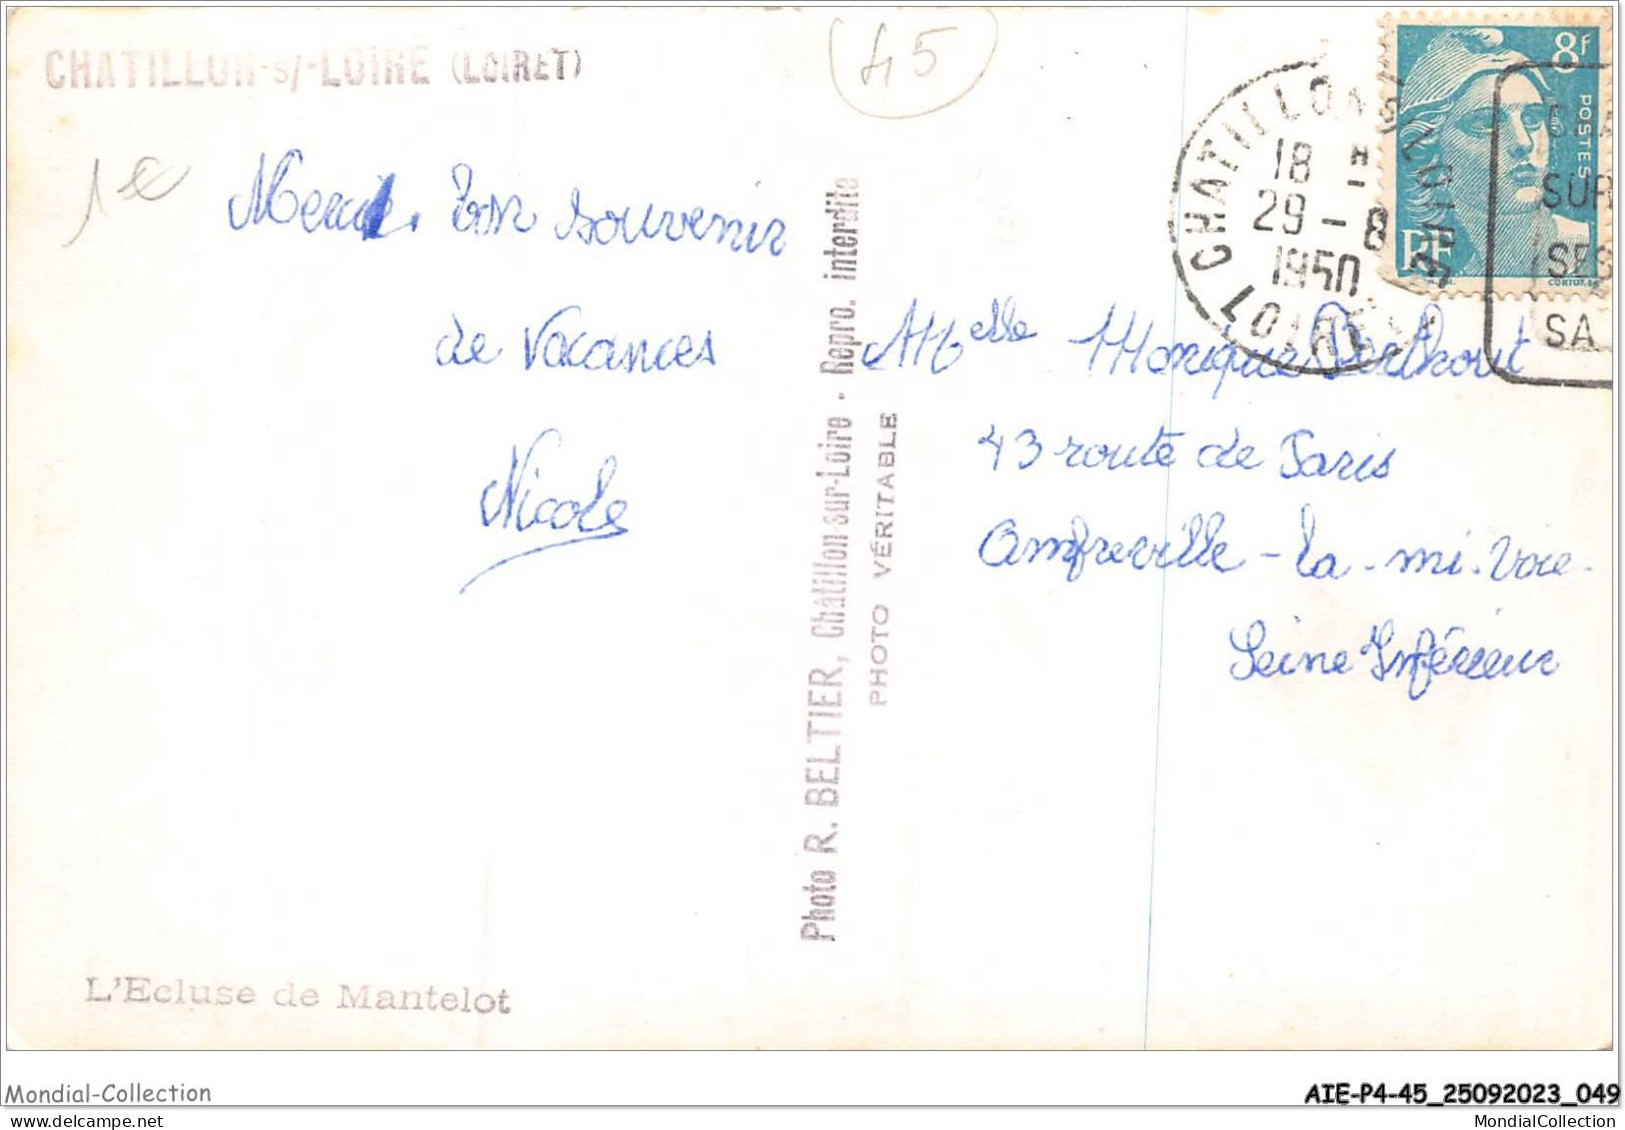 CHATILLON-s/-LOIRE (LOIRET)
45
1€
Merci. Bon souvenir
de Vacances
Nicole
L'Ecluse de Mantelot
Photo R. BELTIER, Chatillon-sur-Loire - Repro. interdite
PHOTO VÉRITABLE
8f
POSTES
RF
CHATILLON S LOIRE
18 H
29 - 8
1950
LOIRET
SUR
SES
SA
Melle Monique
43 route de Paris
Amfreville-la-mi-Voie-
Seine Inférieur
Mondial-Collection
AIE-P4-45_25092023_049
MondialCollection